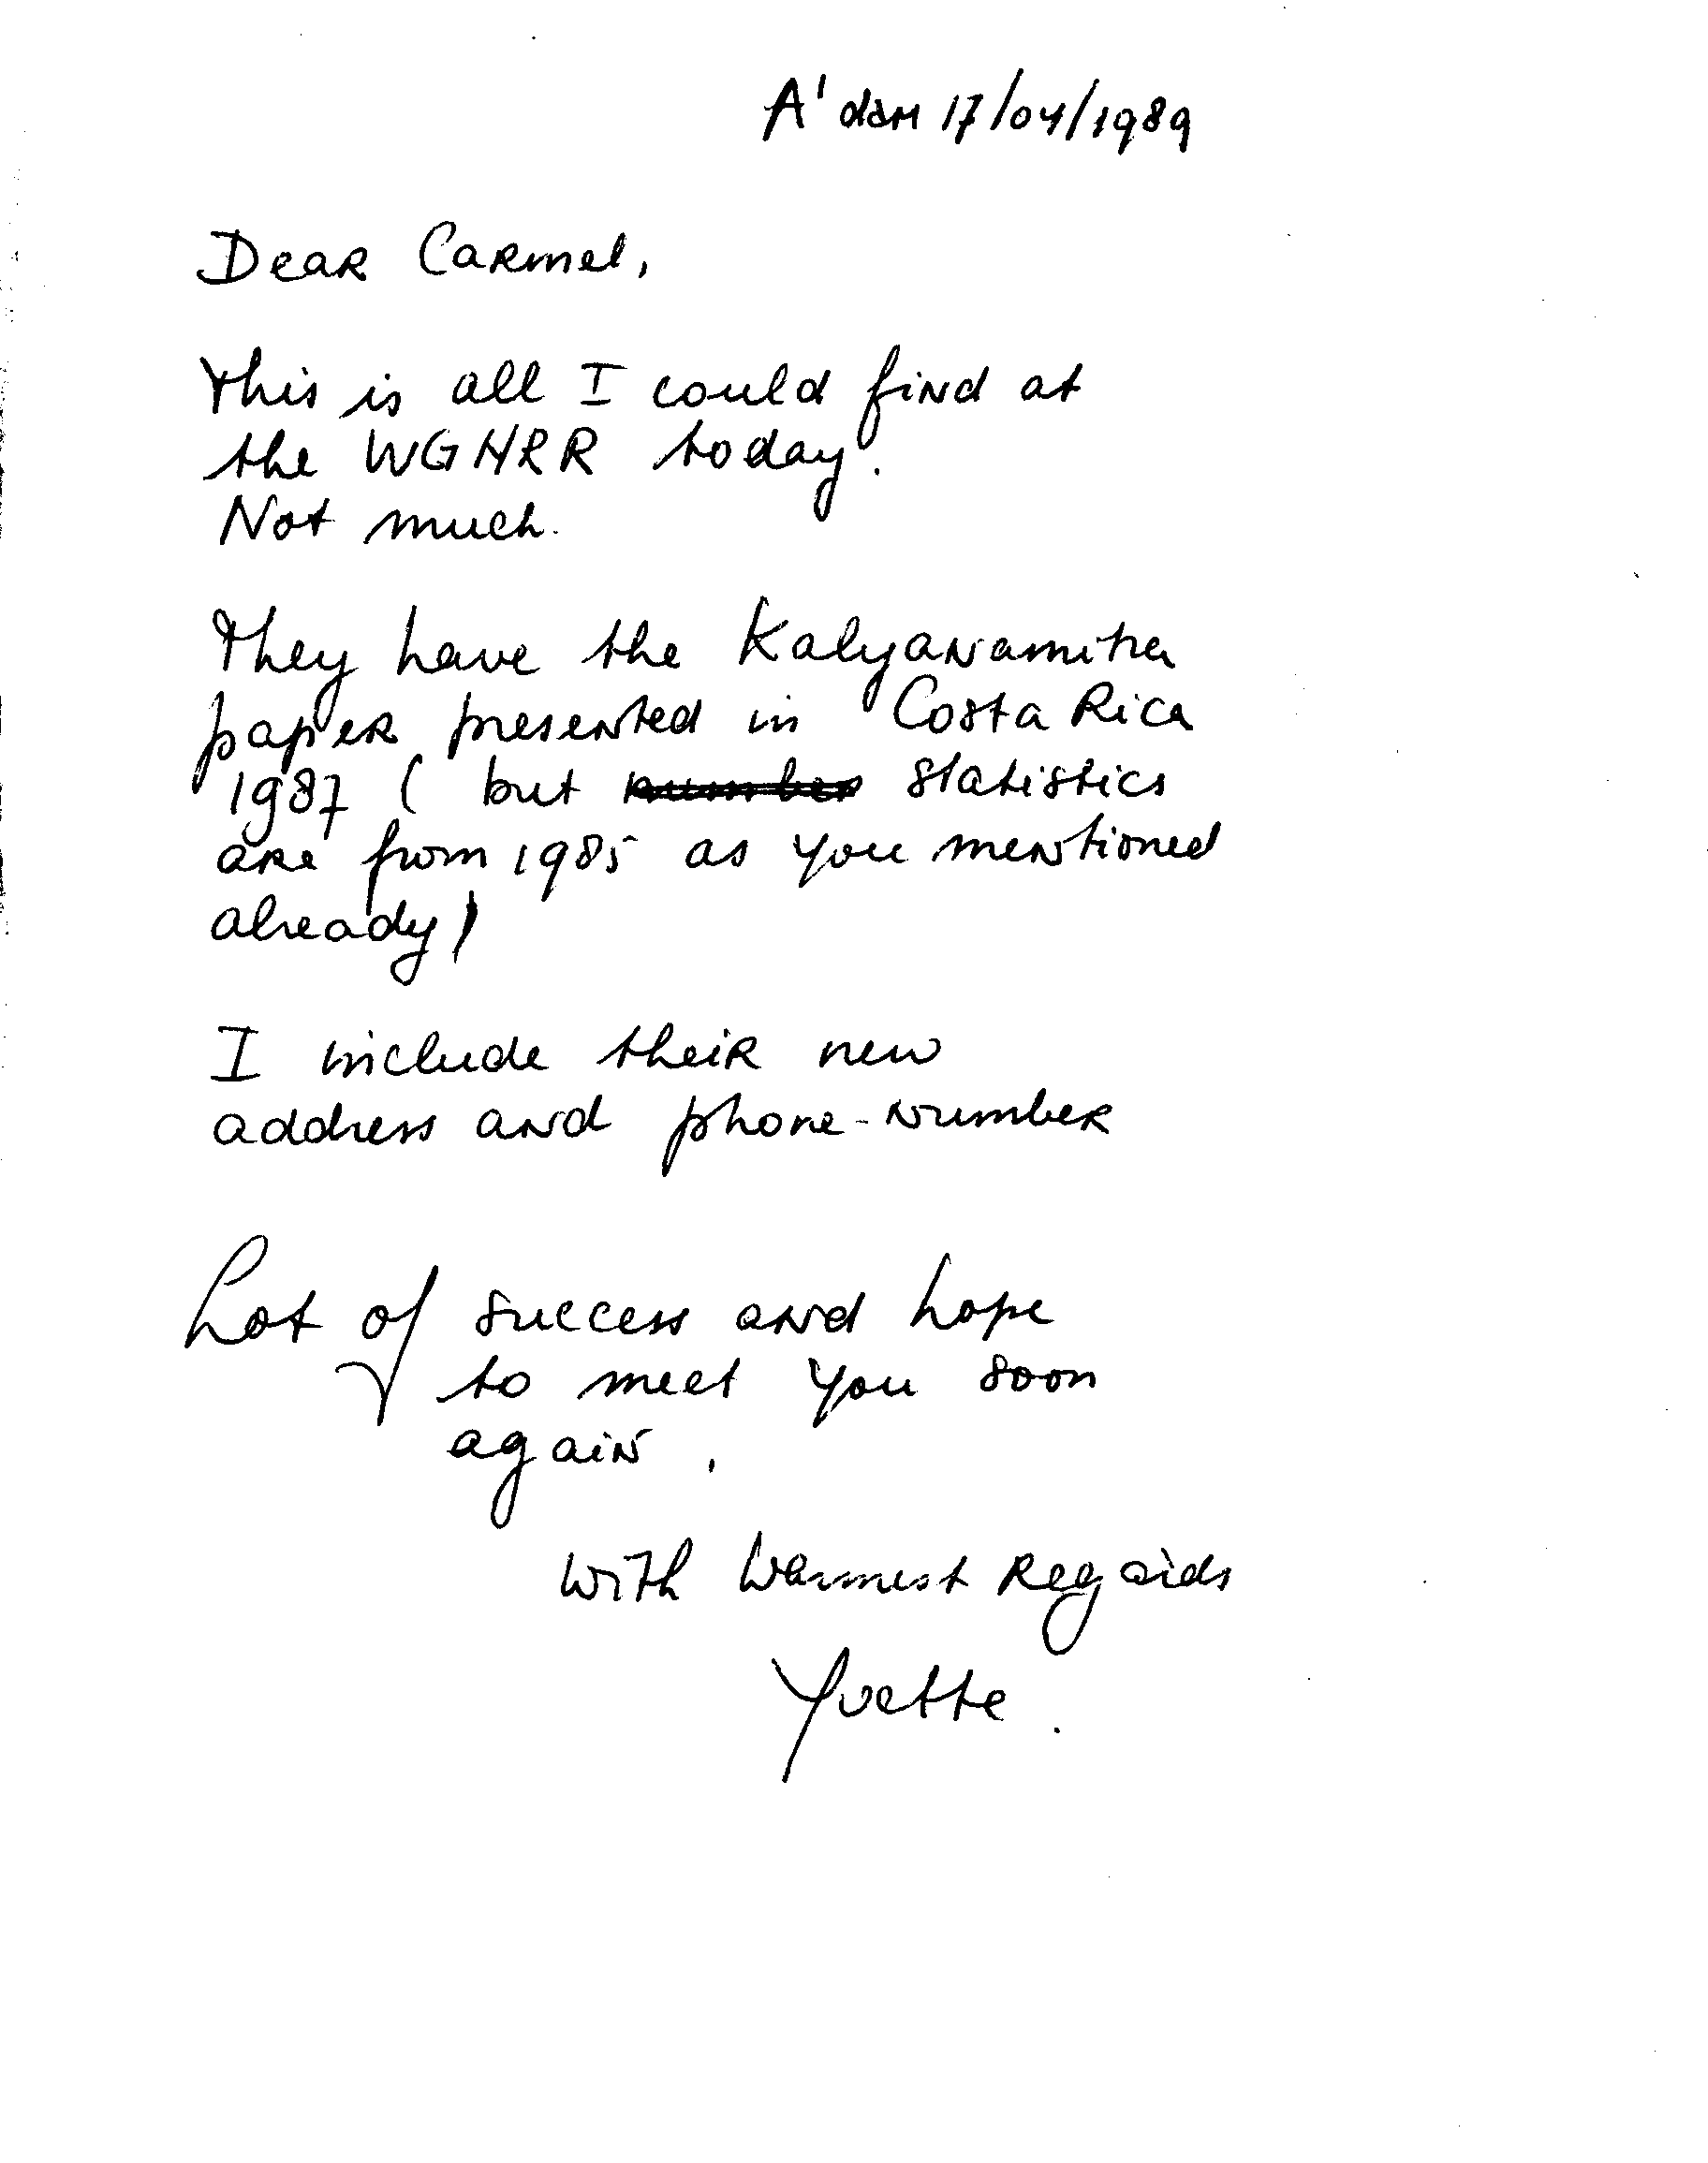 A'dam 17/04/1989
Dear Carmel,
This is all I could find at
the WGNRR today.
Not much.
They have the Kalyanamitra
paper presented in Costa Rica
1987 ( but number statistics
are from 1985 as you mentioned
already)
I include their new
address and phone-number
Lot of success and hope
to meet you soon
again.
With Warmest Regards
Yvette.